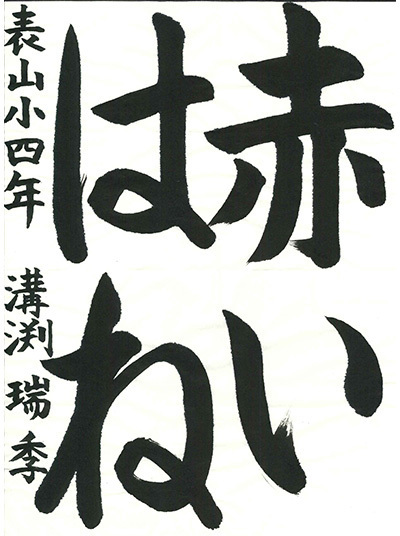 赤い
はね
表山小四年 溝渕瑞季